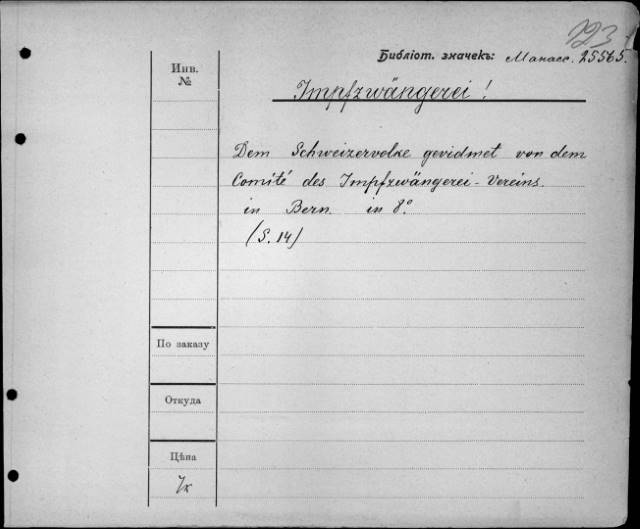 1231
Библіот. значекъ: Манасс. 25565.
Инв.
№
Impfzwängerei!
Dem Schweizervolke gevidmet von dem
Comité des Impfzwängerei-Vereins.
in Bern. in 8°.
(S. 14)
По заказу
Откуда
Цѣна